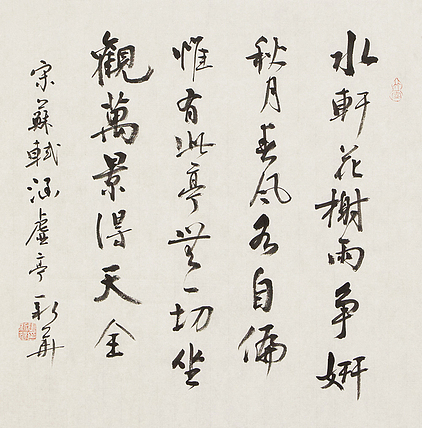 水軒花榭兩争妍
秋月春风各自偏
惟有此亭無一物坐
觀萬景得天全
宋蘇軾涵虛亭